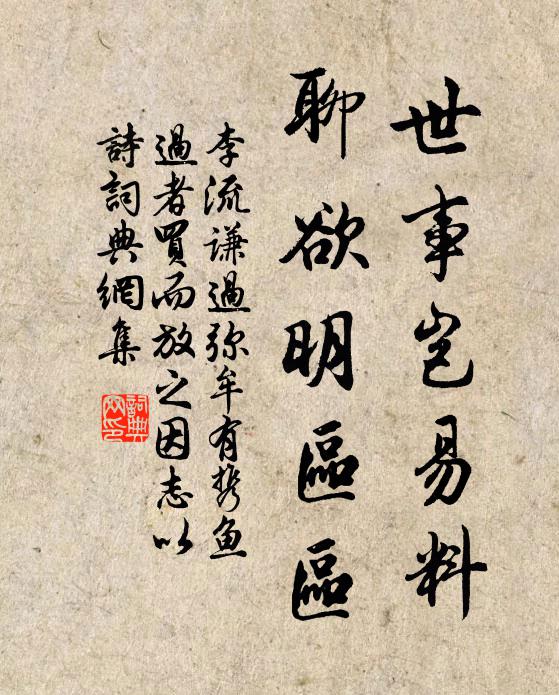 世事岂易料
聊欲明區區
李流谦過弥牟有携鱼
過者買而放之因志以
詩詞典網集
詞典网印